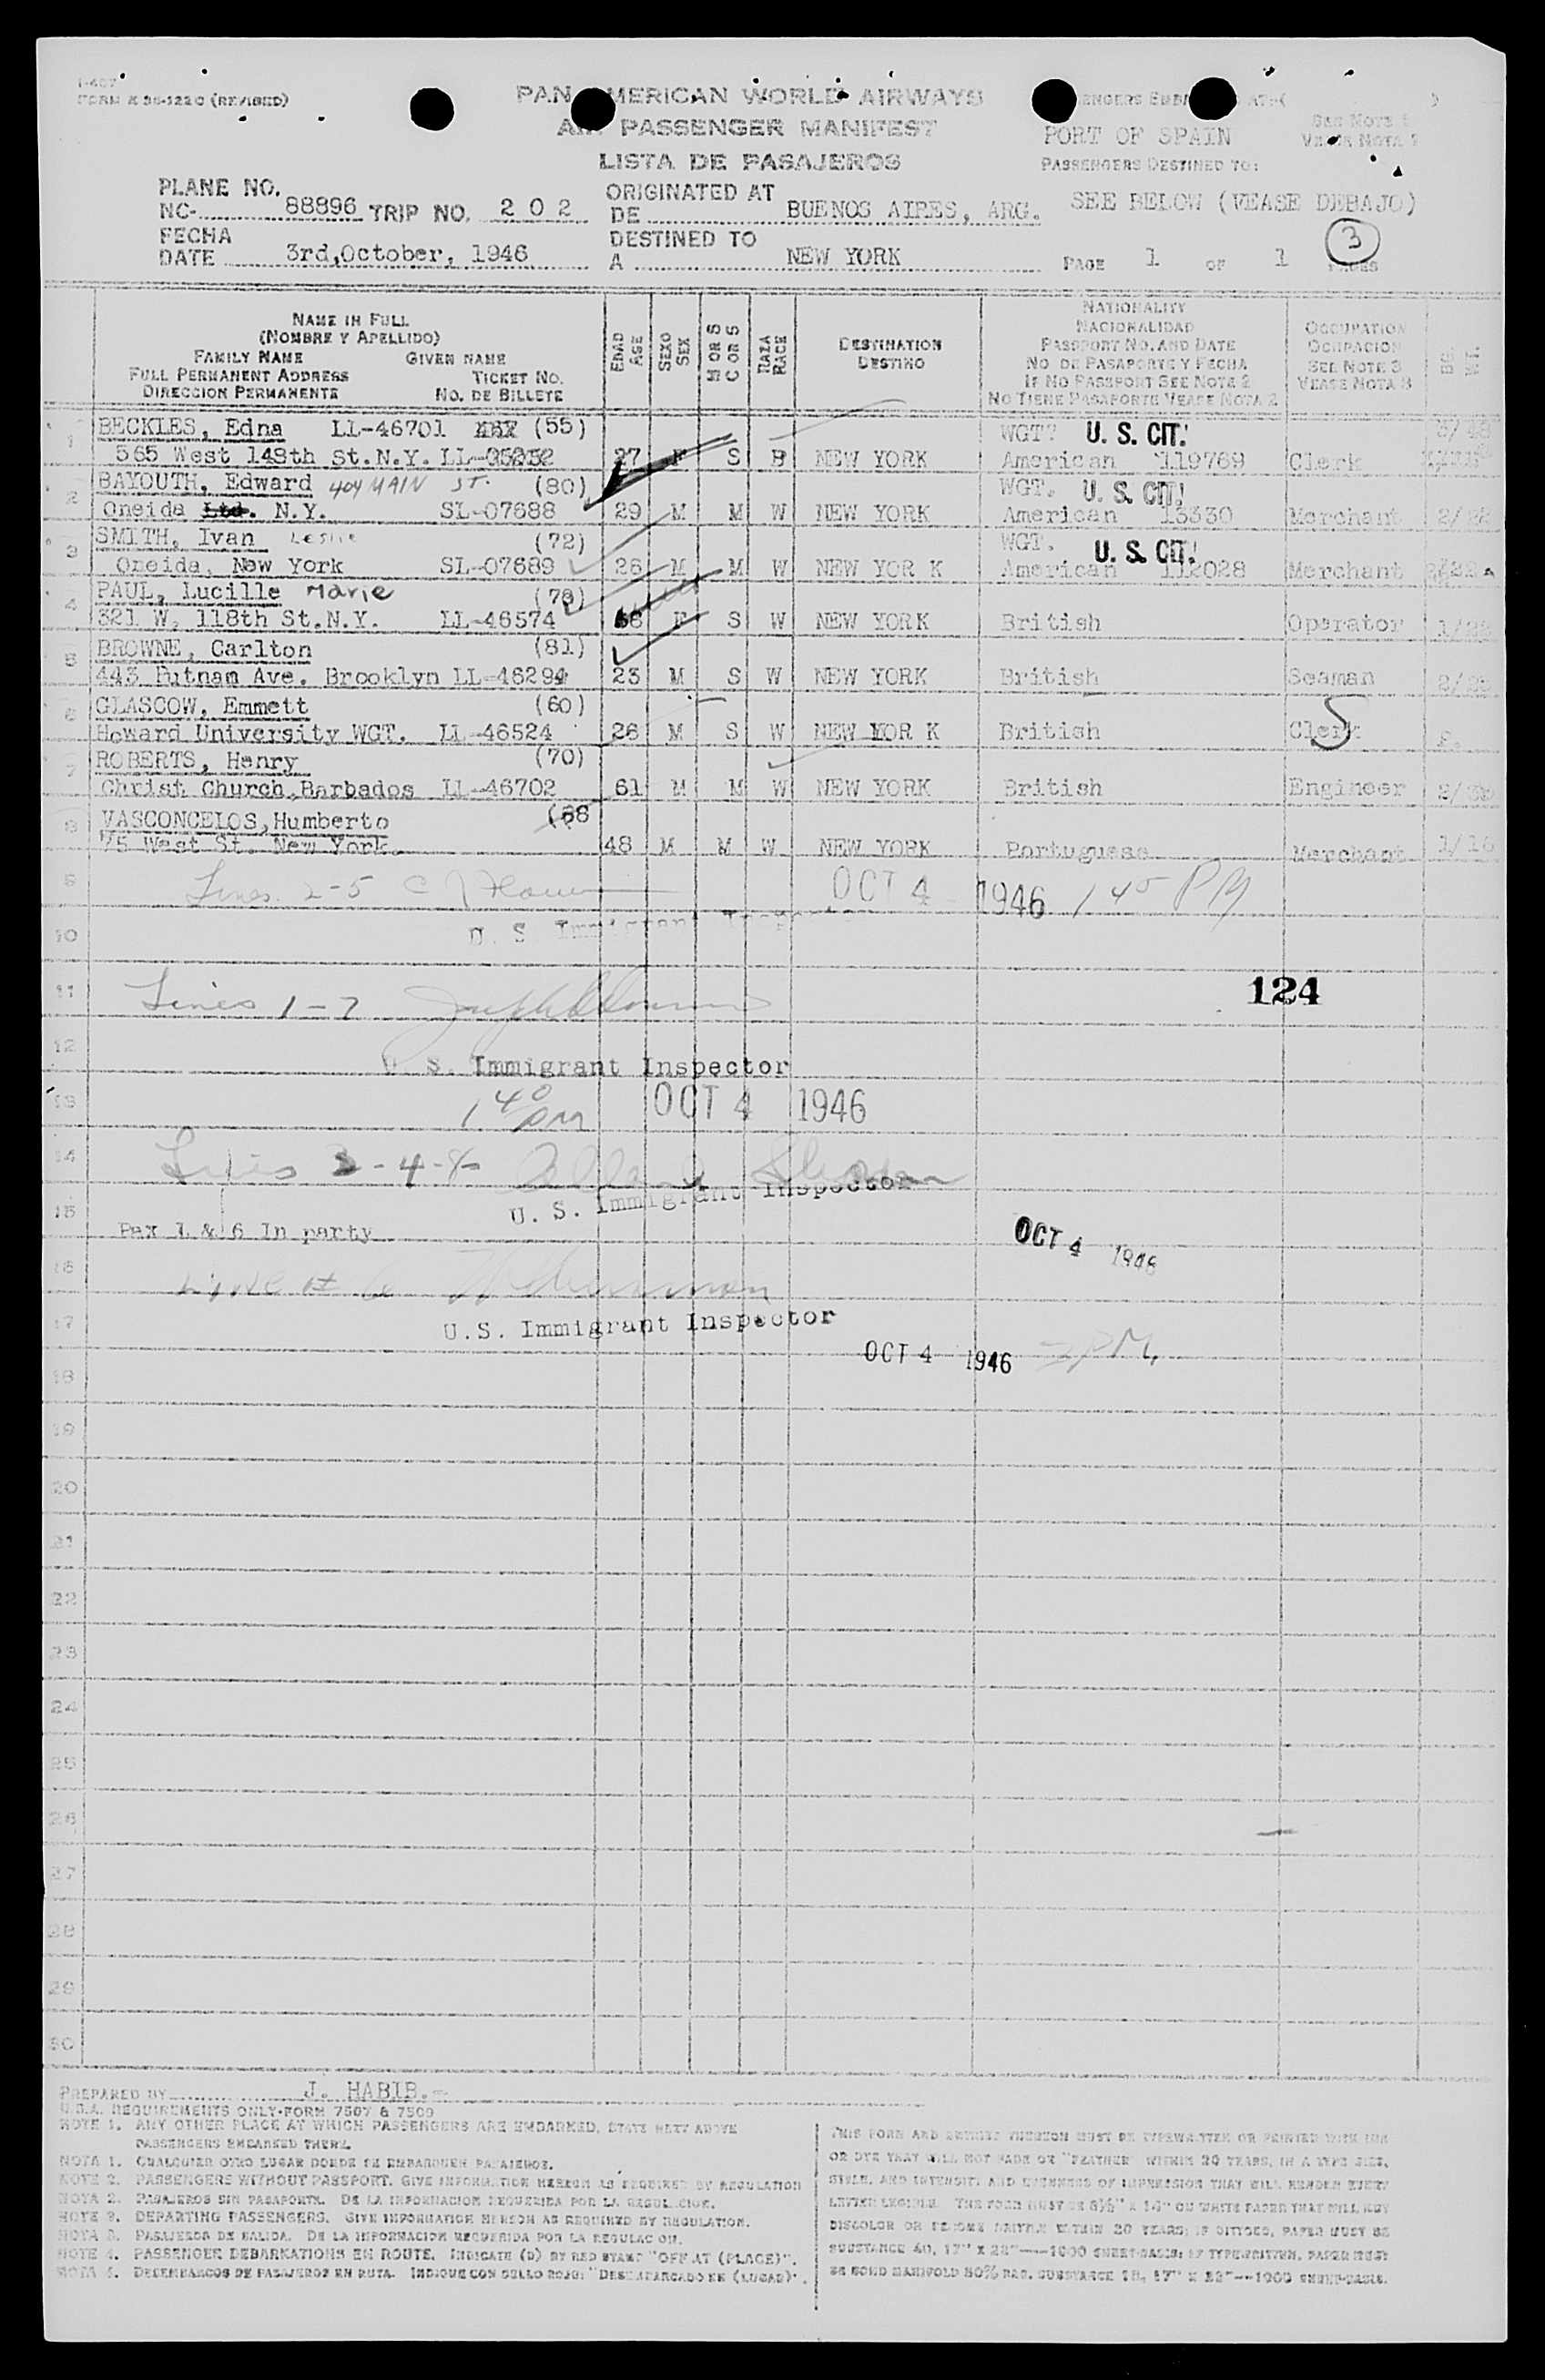 I-467
FORM # 36-122C (REVISED)
PAN AMERICAN WORLD AIRWAYS
AIR PASSENGER MANIFEST
LISTA DE PASAJEROS
PORT OF SPAIN
PASSENGERS DESTINED TO:
SEE BELOW (VEASE DEBAJO)
PLANE NO.
NC- 88896 TRIP NO. 202
FECHA
DATE 3rd, October, 1946
ORIGINATED AT
DE BUENOS AIRES, ARG.
DESTINED TO
A NEW YORK
PAGE 1 OF 1 PAGES
3
NAME IN FULL
(NOMBRE Y APELLIDO)
FAMILY NAME GIVEN NAME
FULL PERMANENT ADDRESS TICKET NO.
DIRECCION PERMANENTE NO. DE BILLETE
EDAD AGE
SEXO SEX
M OR S C OR S
RAZA RACE
DESTINATION
DESTINO
NATIONALITY
NACIONALIDAD
PASSPORT NO. AND DATE
NO DE PASAPORTE Y FECHA
IF NO PASSPORT SEE NOTE 2
NO TIENE PASAPORTE VEASE NOTA 2
OCCUPATION
OCUPACION
SEE NOTE 3
VEASE NOTA 3
1 BECKLES, Edna LL-46701 (55) WGT? U. S. CIT.
565 West 148th St. N.Y. 27 F S B NEW YORK American 119769 Clerk
2 BAYOUTH, Edward 404 MAIN ST. (80) WGT. U. S. CIT.
Oneida Ltd. N.Y. SL-07688 29 M M W NEW YORK American 13330 Merchant
3 SMITH, Ivan Leslie (72) WGT. U. S. CIT.
Oneida, New York SL-07689 26 M M W NEW YOR K American 112028 Merchant
4 PAUL, Lucille Marie (78)
321 W. 118th St. N.Y. LL-46574 F S W NEW YORK British Operator
5 BROWNE, Carlton (81)
443 Putnam Ave. Brooklyn LL-46294 23 M S W NEW YORK British Seaman
6 GLASCOW, Emmett (60)
Howard University WGT. LL-46524 26 M S W NEW YOR K British Clerk
7 ROBERTS, Henry (70)
Christ Church, Barbados LL-46702 61 M M W NEW YORK British Engineer
8 VASCONCELOS, Humberto (68
75 West St. New York. 48 M M W NEW YORK Portuguese Merchant
9 Lines 2-5 OCT 4 1946 1 45 PM
10 U. S. Immigrant Inspector
11 Lines 1-7 124
12 U. S. Immigrant Inspector
13 1 40 PM OCT 4 1946
14 Lines 3-4-8
15 U. S. Immigrant Inspector
Pax 1 & 6 In party OCT 4 1946
16
17 U.S. Immigrant Inspector
OCT 4 1946 2 PM.
18
19
20
21
22
23
24
25
26
27
28
29
30
PREPARED BY J. HABIB.-
U.S.A. REQUIREMENTS ONLY-FORM 7507 & 7509
NOTE 1. ANY OTHER PLACE AT WHICH PASSENGERS ARE EMBARKED, STATE NEXT ABOVE
PASSENGERS EMBARKED THERE.
NOTA 1. CUALQUIER OTRO LUGAR DONDE SE EMBARQUEN PASAJEROS.
NOTE 2. PASSENGERS WITHOUT PASSPORT. GIVE INFORMATION HEREON AS REQUIRED BY REGULATION
NOTA 2. PASAJEROS SIN PASAPORTE. DE LA INFORMACION REQUERIDA POR LA REGULACION.
NOTE 3. DEPARTING PASSENGERS. GIVE INFORMATION HEREON AS REQUIRED BY REGULATION.
NOTA 3. PASAJEROS DE SALIDA. DE LA INFORMACION REQUERIDA POR LA REGULACION.
NOTE 4. PASSENGER DEBARKATIONS EN ROUTE. INDICATE (D) BY RED STAMP "OFF AT (PLACE)".
NOTA 4. DESEMBARCOS DE PASAJEROS EN RUTA. INDIQUE CON SELLO ROJO: "DESEMBARCADO EN (LUGAR)".
THIS FORM AND ENTRIES THEREON MUST BE TYPEWRITTEN OR PRINTED WITH INK
OR DYE THAT WILL NOT FADE OR "FEATHER" WITHIN 20 YEARS, IN A TYPE SIZE,
STYLE, AND INTENSITY AND EVENNESS OF IMPRESSION THAT WILL RENDER EVERY
LETTER LEGIBLE. THE FORM MUST BE 8½" X 14" ON WHITE PAPER THAT WILL NOT
DISCOLOR OR BECOME BRITTLE WITHIN 20 YEARS; IF DITTOED, PAPER MUST BE
SUBSTANCE 40, 17" X 28"--1000 SHEET-BASIS; IF TYPEWRITTEN, PAPER MUST
BE BOND MANIFOLD 50% RAG. SUBSTANCE 18, 17" X 22"--1000 SHEET-BASIS.